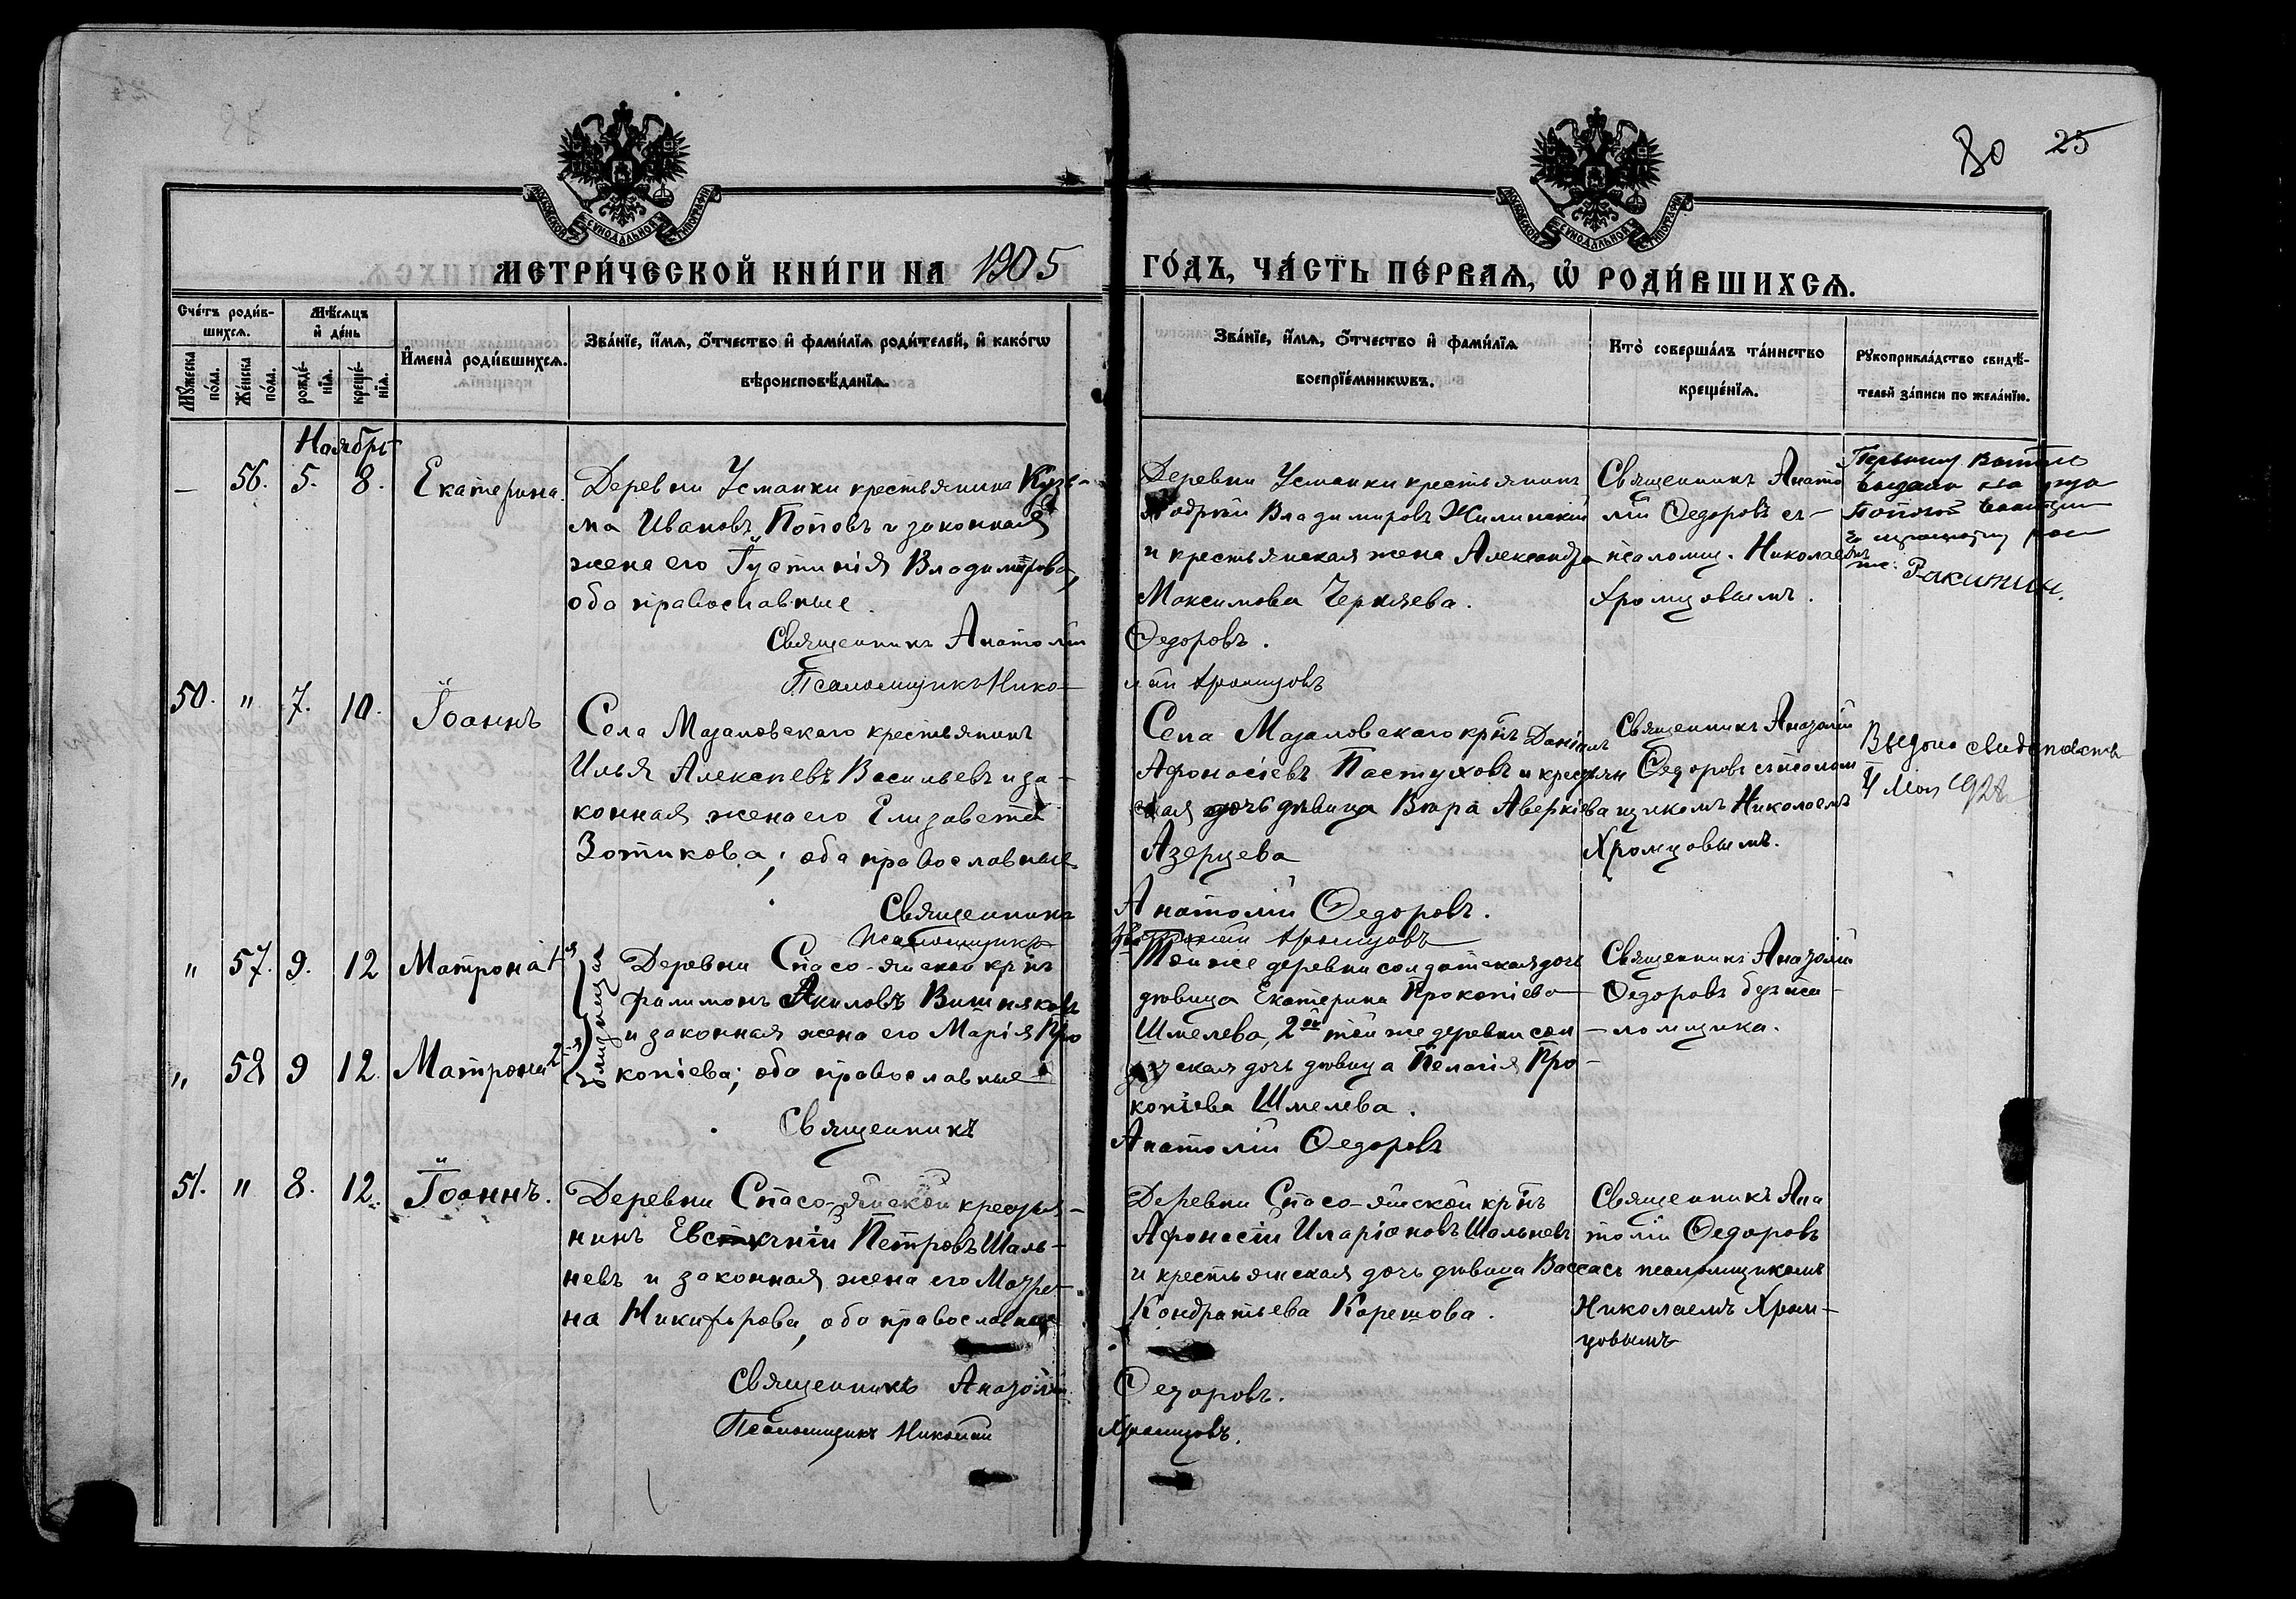 80 25
МОСКОВСКОЙ СѴНОДАЛЬНОЙ ТИПОГРАФІИ
МОСКОВСКОЙ СѴНОДАЛЬНОЙ ТИПОГРАФІИ
МЕТРИ́ЧЕСКОЙ КНИ́ГИ НА 1905
ГО́ДЪ, ЧА́СТЬ ПЕ́РВАѦ, Ѽ РОДИ́ВШИХСѦ.
Сче́тъ роди́в-
шихсѧ.
Мꙋ́жеска по́ла.
Же́нска по́ла.
Мѣ́сѧцъ
и҆ де́нь
рожде́-
нїѧ.
креще́-
нїѧ.
И҆мена̀ роди́вшихсѧ.
Зва́нїе, и҆́мѧ, ѻ҆́тчество и҆ фами́лїѧ роди́телей, и҆ како́гѡ
вѣроисповѣ́данїѧ.
Зва́нїе, и҆́мѧ, ѻ҆́тчество и҆ фами́лїѧ
воспрїе́мникѡвъ.
Кто̀ соверша́лъ та́инство
креще́нїѧ.
Рꙋкоприкла́дство свидѣ́-
телей за́писи по жела́нїю.
Ноябрь
— 56. 5. 8. Екатерина.
Деревни Усманки крестьянинъ Кузь-
ма Ивановъ Поповъ и законная
жена его Іустинія Владимірова,
оба православные.
Священникъ Анатолій
Псаломщикъ Нико-
Деревни Усманки крестьянинъ
Владиміровъ Жилинскій
и крестьянская жена Александра
Максимова Черняева.
Федоровъ.
лай Хромцовъ
Священникъ Анато
лій Федоровъ съ
псаломщ. Николаемъ
Хромцовымъ.
Ракитин.
50. " 7. 10. Іоаннъ
Села Мазаловскаго крестьянинъ
Илья Алексѣевъ Васильевъ и за-
конная жена его Елизавета
Зотикова; оба православные
Священникъ
Псаломщикъ
Села Мазаловскаго кр҃нъ Даніилъ
Афонасіевъ Пастуховъ и крестьян
ская дочь дѣвица Вѣра Аверкіева
Азерцева
Анатолій Федоровъ.
Хромцовъ
Священникъ Анатолій
Федоровъ съ псалом
щикомъ Николаемъ
Хромцовымъ.
Выдано свидетельств
4 Мая 1928
" 57. 9. 12 Матрона 1-я
" 58 9 12. Матрона 2-я
близнецы
Деревни Спасо-яйской кр҃нъ
Филимонъ Акиловъ Вишняковъ
и законная жена его Марія Про
копіева; оба православные
Священникъ
Той же деревни солдатская дочь
дѣвица Екатерина Прокопіева
Шмелева, 2-ой той же деревни сол-
датская дочь дѣвица Пелагія Про-
копіева Шмелева.
Анатолій Федоровъ
Священникъ Анатолій
Федоровъ безъ пса-
ломщика.
51. " 8. 12. Іоаннъ.
Деревни Спасо-яйской крестья-
нинъ Евстихній Петровъ Шаль-
невъ и законная жена его Матре-
на Никифорова, оба православные
Священникъ Анатолій
Псаломщикъ Николай
Деревни Спасо-яйской кр҃нъ
Афонасій Иларіоновъ Шальневъ
и крестьянская дочь дѣвица Васса
Кондратьева Корешова.
Федоровъ.
Хромцовъ.
Священникъ Ана
толій Федоровъ
съ псаломщикомъ
Николаемъ Хром-
цовымъ